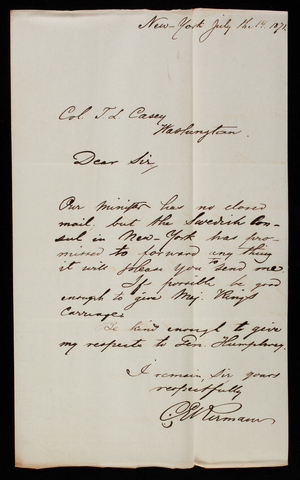 New-York July the 1st 1871.
Col T L Casey
Washington
Dear Sir,
Our minister has no closed
mail, but the Swedish Con-
sul in New-York has pro-
mised to forward any thing
it will please You to send me
If possible be good
enough to give Maj. King's
Carriage
Be kind enough to give
my respects to Gen. Humphrey.
I remain, Sir yours
respectfully